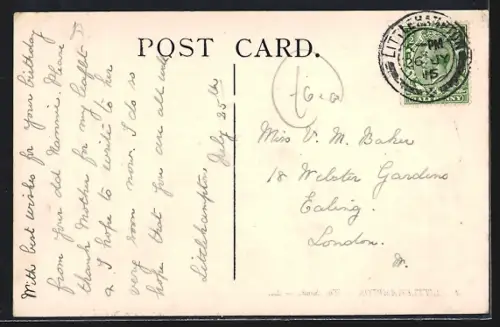 POST CARD.
With best wishes for your birthday
from your old Nannie. Please
thank Mother for my leaflet
& I hope to write to her
very soon now. I do so
hope that you are all well
Littlehampton
July 25th
LITTLEHAMPTON
PM
JY
15
HALFPENNY
Miss V. M. Baker
18 Wilster Gardens
Ealing.
London.
W.